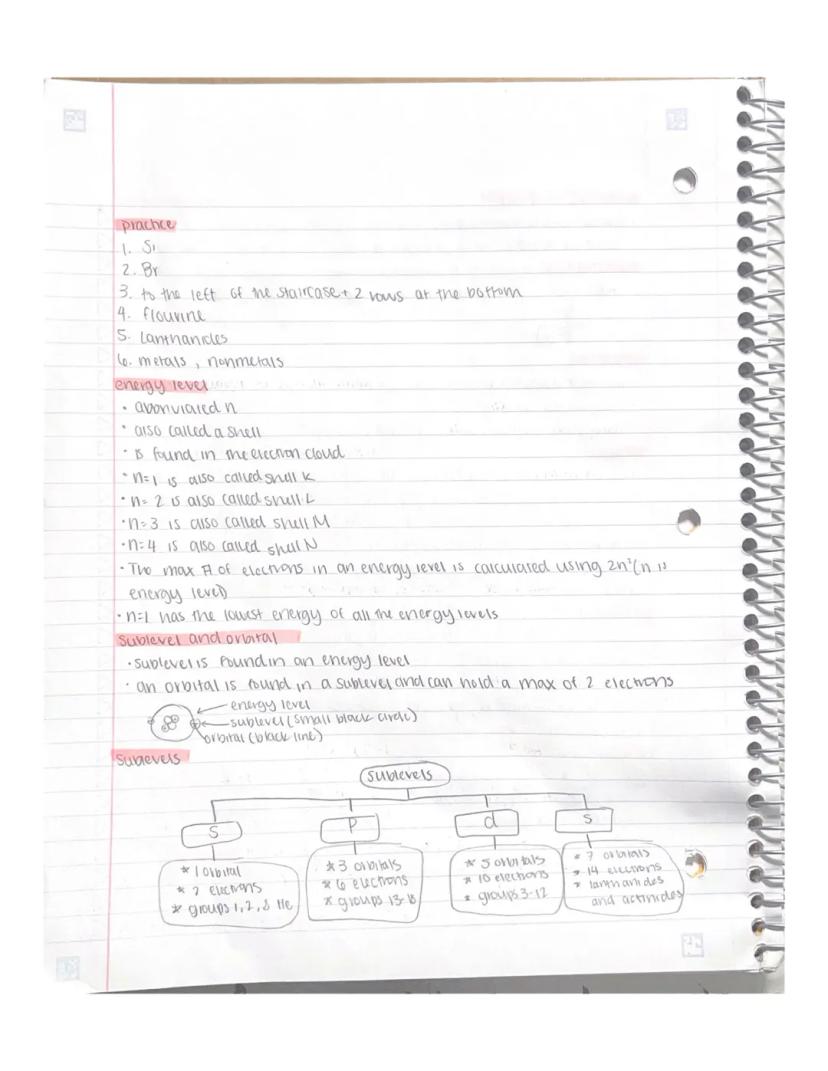 practice
1. Si
2. Br
3. to the left of the staircase + 2 rows at the bottom
4. flourine
5. Lanthanides
6. metals, nonmetals
energy level
• abbrviated n
• also called a shell
• is found in the electron cloud
• n=1 is also called shell K
• n=2 is also called shell L
• n=3 is also called shell M
• n=4 is also called shell N
• The max # of electrons in an energy level is calculated using 2n² (n is
energy level)
• n=1 has the lowest energy of all the energy levels
sublevel and orbital
• sublevel is found in an energy level
• an orbital is found in a sublevel and can hold a max of 2 electrons
energy level
sublevel (small black circle)
orbital (black line)
sublevels
sublevels
s
p
d
s
* 1 orbital
* 2 electrons
* groups 1, 2, & He
* 3 orbitals
* 6 electrons
* groups 13-18
* 5 orbitals
* 10 electrons
* groups 3-12
* 7 orbitals
* 14 electrons
* lanthanides
and actinides